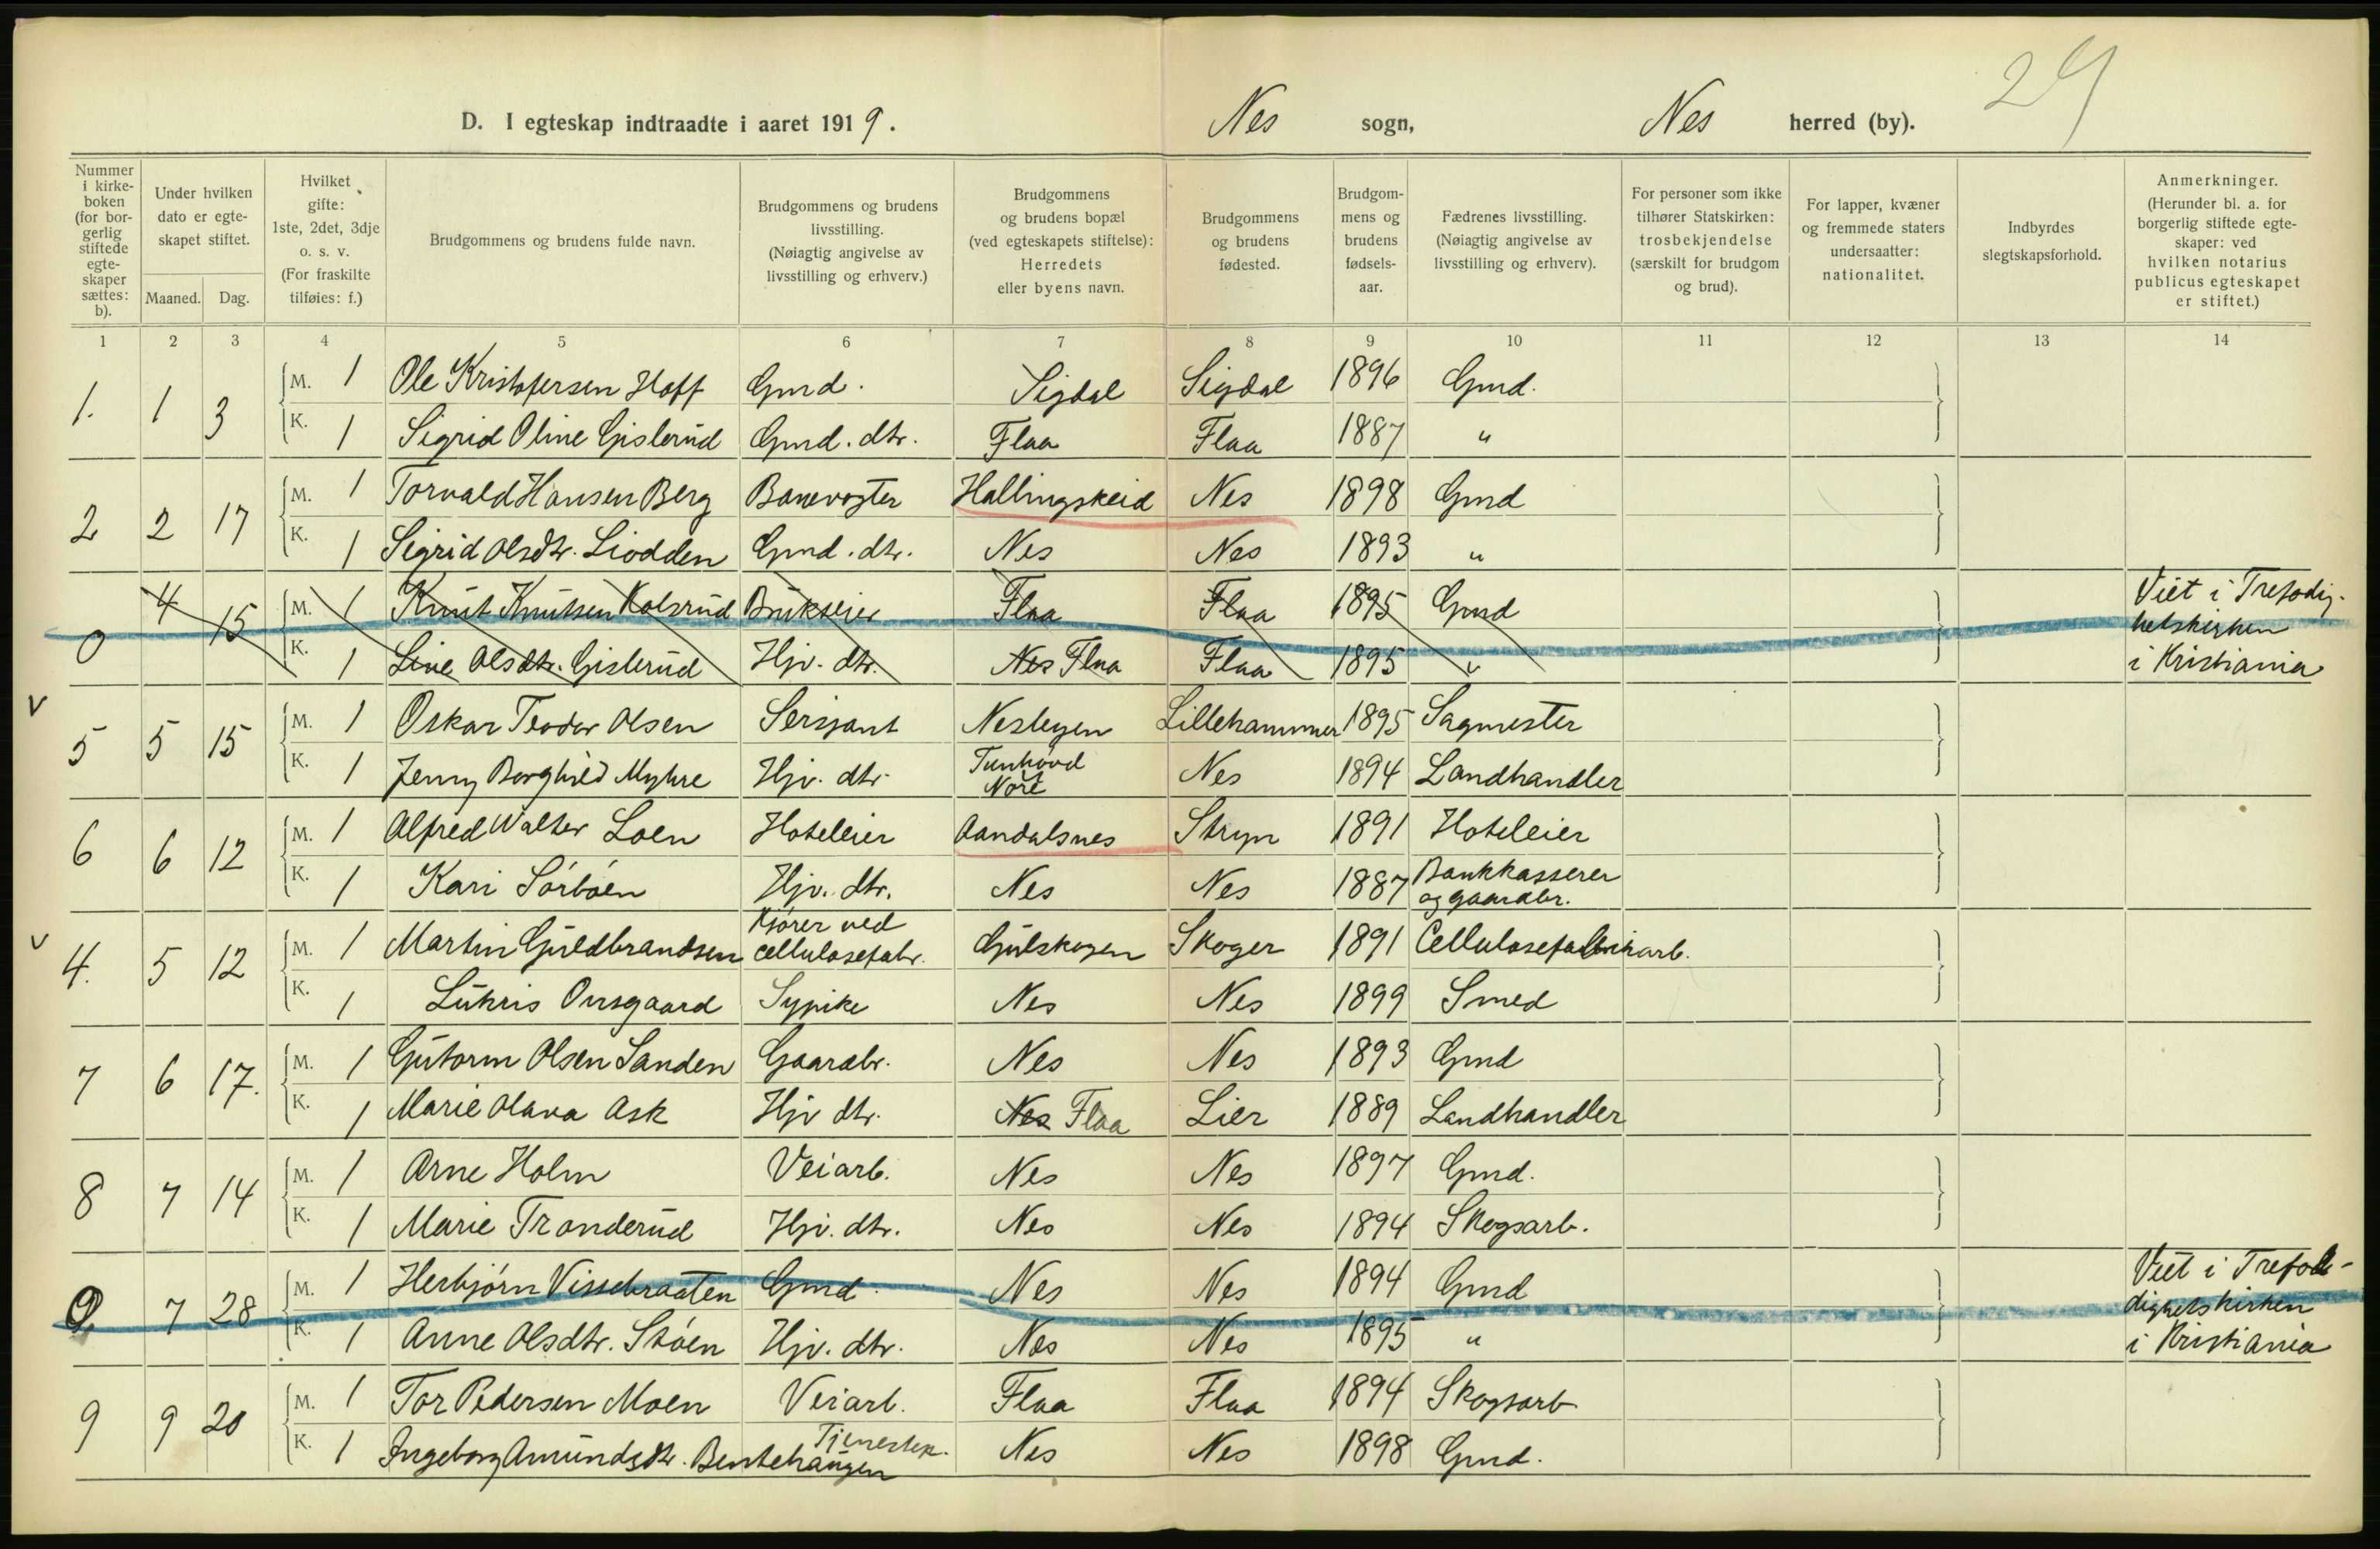 29
D. I egteskap indtraadte i aaret 1919. Nes sogn, Nes herred (by).
Nummer i kirke-boken (for bor-gerlig stiftede egte-skaper sættes: b).
Under hvilken dato er egte-skapet stiftet.
Maaned. Dag.
Hvilket gifte: 1ste, 2det, 3dje o. s. v. (For fraskilte tilføies: f.)
Brudgommens og brudens fulde navn.
Brudgommens og brudens livsstilling. (Nøiagtig angivelse av livsstilling og erhverv.)
Brudgommens og brudens bopæl (ved egteskapets stiftelse): Herredets eller byens navn.
Brudgommens og brudens fødested.
Brudgom-mens og brudens fødsels-aar.
Fædrenes livsstilling. (Nøiagtig angivelse av livsstilling og erhverv).
For personer som ikke tilhører Statskirken: trosbekjendelse (særskilt for brudgom og brud).
For lapper, kvæner og fremmede staters undersaatter: nationalitet.
Indbyrdes slegtskapsforhold.
Anmerkninger. (Herunder bl. a. for borgerlig stiftede egte-skaper: ved hvilken notarius publicus egteskapet er stiftet.)
1 2 3 4 5 6 7 8 9 10 11 12 13 14
1. 1 3 M. 1 Ole Kristofersen Hoff Gmd. Sigdal Sigdal 1896 Gmd.
K. 1 Sigrid Oline Gislerud Gmd. dtr. Flaa Flaa 1887 "
2 2 17 M. 1 Torvald Hansen Berg Banevogter Hallingskeid Nes 1898 Gmd
K. 1 Sigrid Olsdtr. Liodden Gmd. dtr. Nes Nes 1893 "
0 4 15 M. 1 Knut Knutsen Kolsrud Brukseier Flaa Flaa 1895 Gmd Viet i Trefodig-
hetskirken
K. 1 Line Olsdtr. Gislerud Hjv. dtr. Nes Flaa Flaa 1895 " i Kristiania
v
5 5 15 M. 1 Oskar Teodor Olsen Sersjant Nesbyen Lillehammer 1895 Sagmester
K. 1 Jenny Borghild Myhre Hjv. dtr. Tunhovd Nore Nes 1894 Landhandler
6 6 12 M. 1 Alfred Walter Loen Hoteleier Aandalsnes Stryn 1891 Hoteleier
K. 1 Kari Sørbøen Hjv. dtr. Nes Nes 1887 Bankkasserer og gaardbr.
v
4. 5 12 M. 1 Martin Guldbrandsen Kjører ved cellulosefabr. Gulskogen Skoger 1891 Cellulosefabrikarb.
K. 1 Lukris Onsgaard Sypike Nes Nes 1899 Smed
7 6 17. M. 1 Gutorm Olsen Sanden Gaardbr. Nes Nes 1893 Gmd
K. 1 Marie Olava Ask Hjv dtr. Nes Flaa Lier 1889 Landhandler
8 7 14 M. 1 Arne Holm Veiarb. Nes Nes 1897 Gmd.
K. 1 Marie Tronderud Hjv. dtr. Nes Nes 1894 Skogsarb.
0 7 28 M. 1 Herbjørn Vissebraaten Gmd. Nes Nes 1894 Gmd Viet i Trefol-
dighetskirken
K. 1 Anne Olsdtr. Støen Hjv. dtr. Nes Nes 1895 " i Kristiania
9 9 20 M. 1 Tor Pedersen Moen Veiarb. Flaa Flaa 1894 Skogsarb
K. 1 Ingeborg Amundsdtr. Bentehaugen Tjenestep. Nes Nes 1898 Gmd.